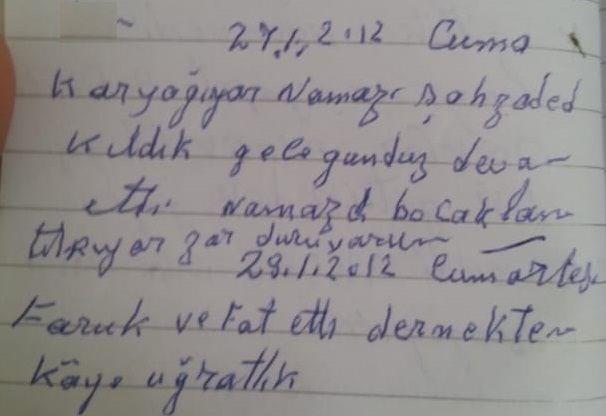 27.1.2012 Cuma
Kar yağıyor Namazı Şahzaded
Kıldık gele gunduz deva-
etti Namazd bocaklam
tikıyor zar duruyorum
28.1.2012 Cumartesi
Faruk vefat etti dernekten
Köye uğratlık